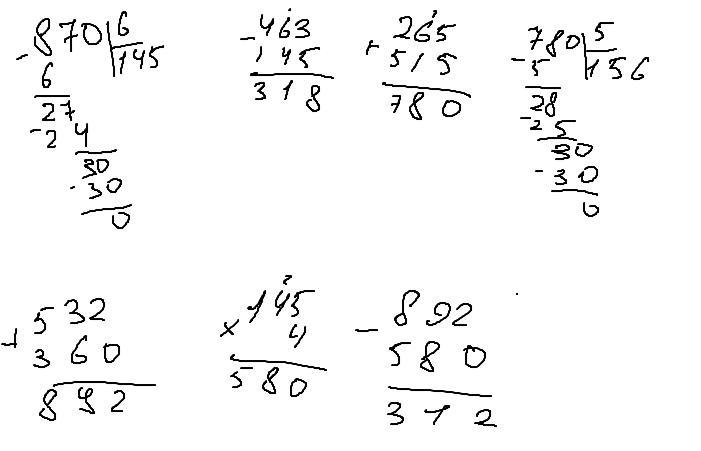 - 870 | 6
6 145
27
- 2 4
30
- 30
0
- 463
1 45
3 1 8
+ 265
515
780
- 780 | 5
5 156
28
- 2 5
30
- 30
0
+ 532
360
892
2
× 145
4
580
- 892
580
312